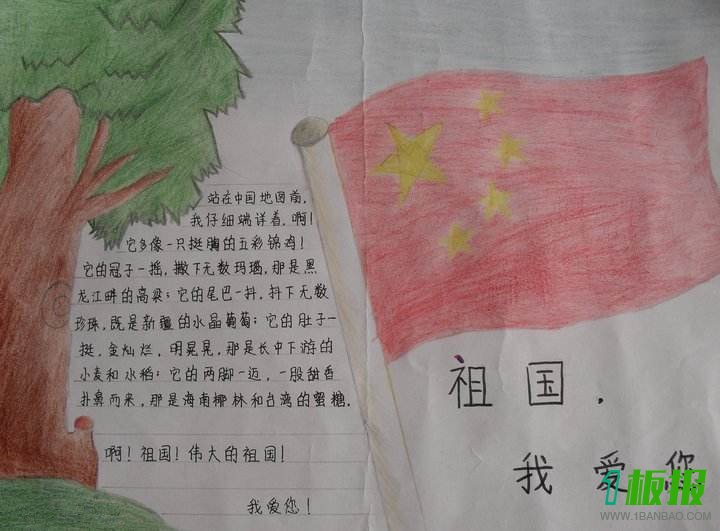 站在中国地图前，
我仔细端详着，啊！
它多像一只挺胸的五彩锦鸡！
它的冠子一摇，撒下无数玛瑙，那是黑
龙江畔的高粱；它的尾巴一抖，抖下无数
珍珠，既是新疆的水晶葡萄；它的肚子一
挺，金灿烂，明晃晃，那是长中下游的
小麦和水稻；它的两脚一迈，一股甜香
扑鼻而来，那是海南椰林和台湾的蜜糖．
啊！祖国！伟大的祖国！
我爱您！
祖国．
我爱您
1板报
WWW.1BANBAO.COM